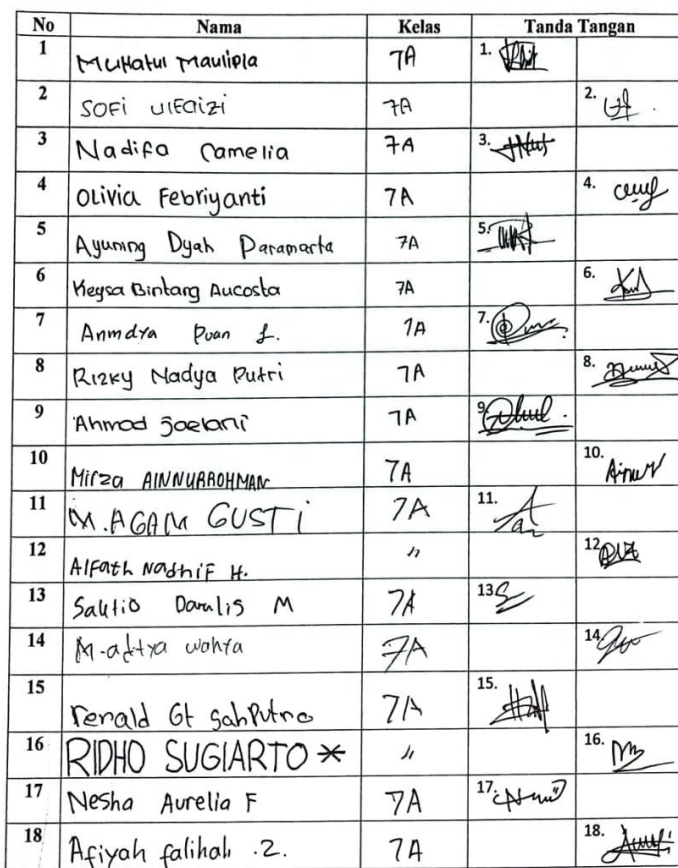 No Nama Kelas Tanda Tangan
1 Mukatul Maulipla 7A 1.
2 SOFi UlFaizi 7A 2.
3 Nadifa Camelia 7A 3.
4 Olivia Febriyanti 7A 4.
5 Ayuning Dyah Paramarta 7A 5.
6 Keysa Bintang Aucosta 7A 6.
7 Anmdya Puan L. 7A 7.
8 Rizky Nadya Putri 7A 8.
9 Ahmad Jaelani 7A 9.
10 Mirza AINNURROHMAN 7A 10.
11 M.AGAM GUSTi 7A 11.
12 Alfath Nadhif H. " 12.
13 Daralis M 7A 13
14 M.aditya wahya 7A 14.
15 renald Gt sahPutra 7A 15.
16 RIDHO SUGIARTO * " 16.
17 Nesha Aurelia F 7A 17.
18 Afiyah falihah .Z. 7A 18.